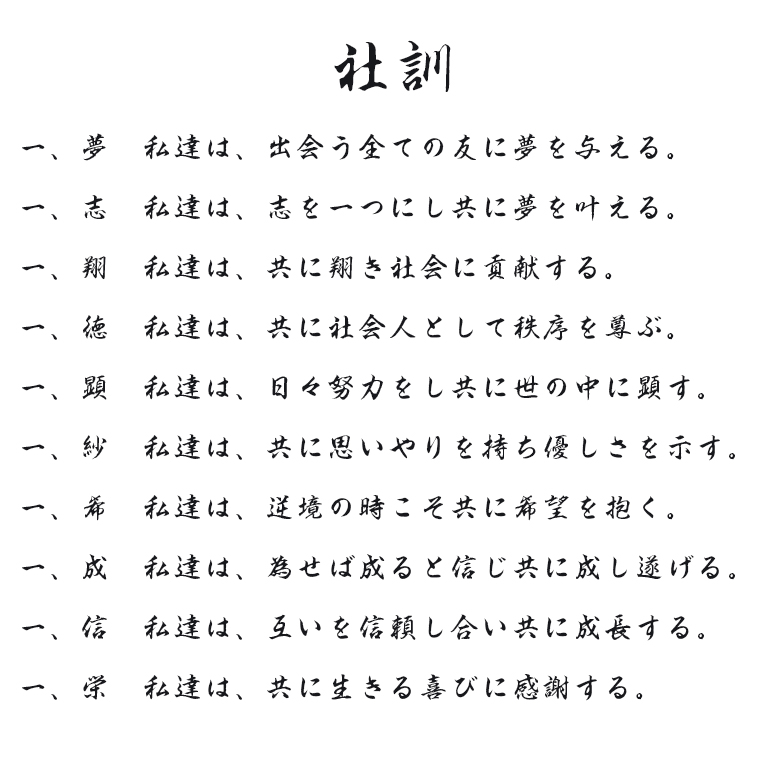 社訓
一、夢　私達は、出会う全ての友に夢を与える。
一、志　私達は、志を一つにし共に夢を叶える。
一、翔　私達は、共に翔き社会に貢献する。
一、徳　私達は、共に社会人として秩序を尊ぶ。
一、顕　私達は、日々努力をし共に世の中に顕す。
一、紗　私達は、共に思いやりを持ち優しさを示す。
一、希　私達は、逆境の時こそ共に希望を抱く。
一、成　私達は、為せば成ると信じ共に成し遂げる。
一、信　私達は、互いを信頼し合い共に成長する。
一、栄　私達は、共に生きる喜びに感謝する。